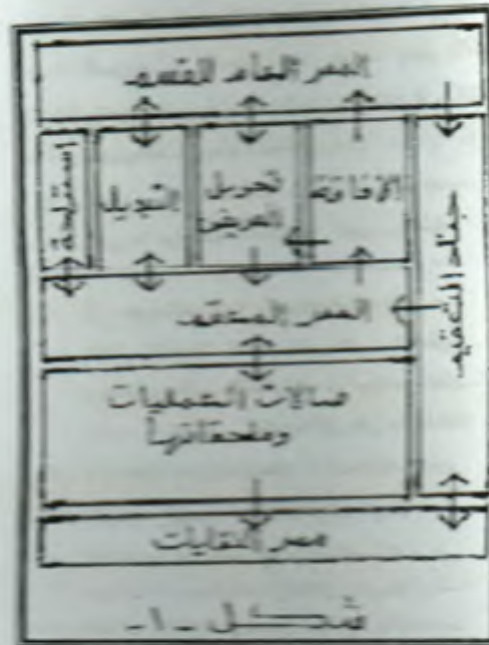 الممر العام للقسم
إستراحة
التبديل
تحويل
المريض
الإفاقة
جناح التعقيم
الممر المعقم
صالات العمليات
وملحقاتها
ممر النفايات
شكل -١-